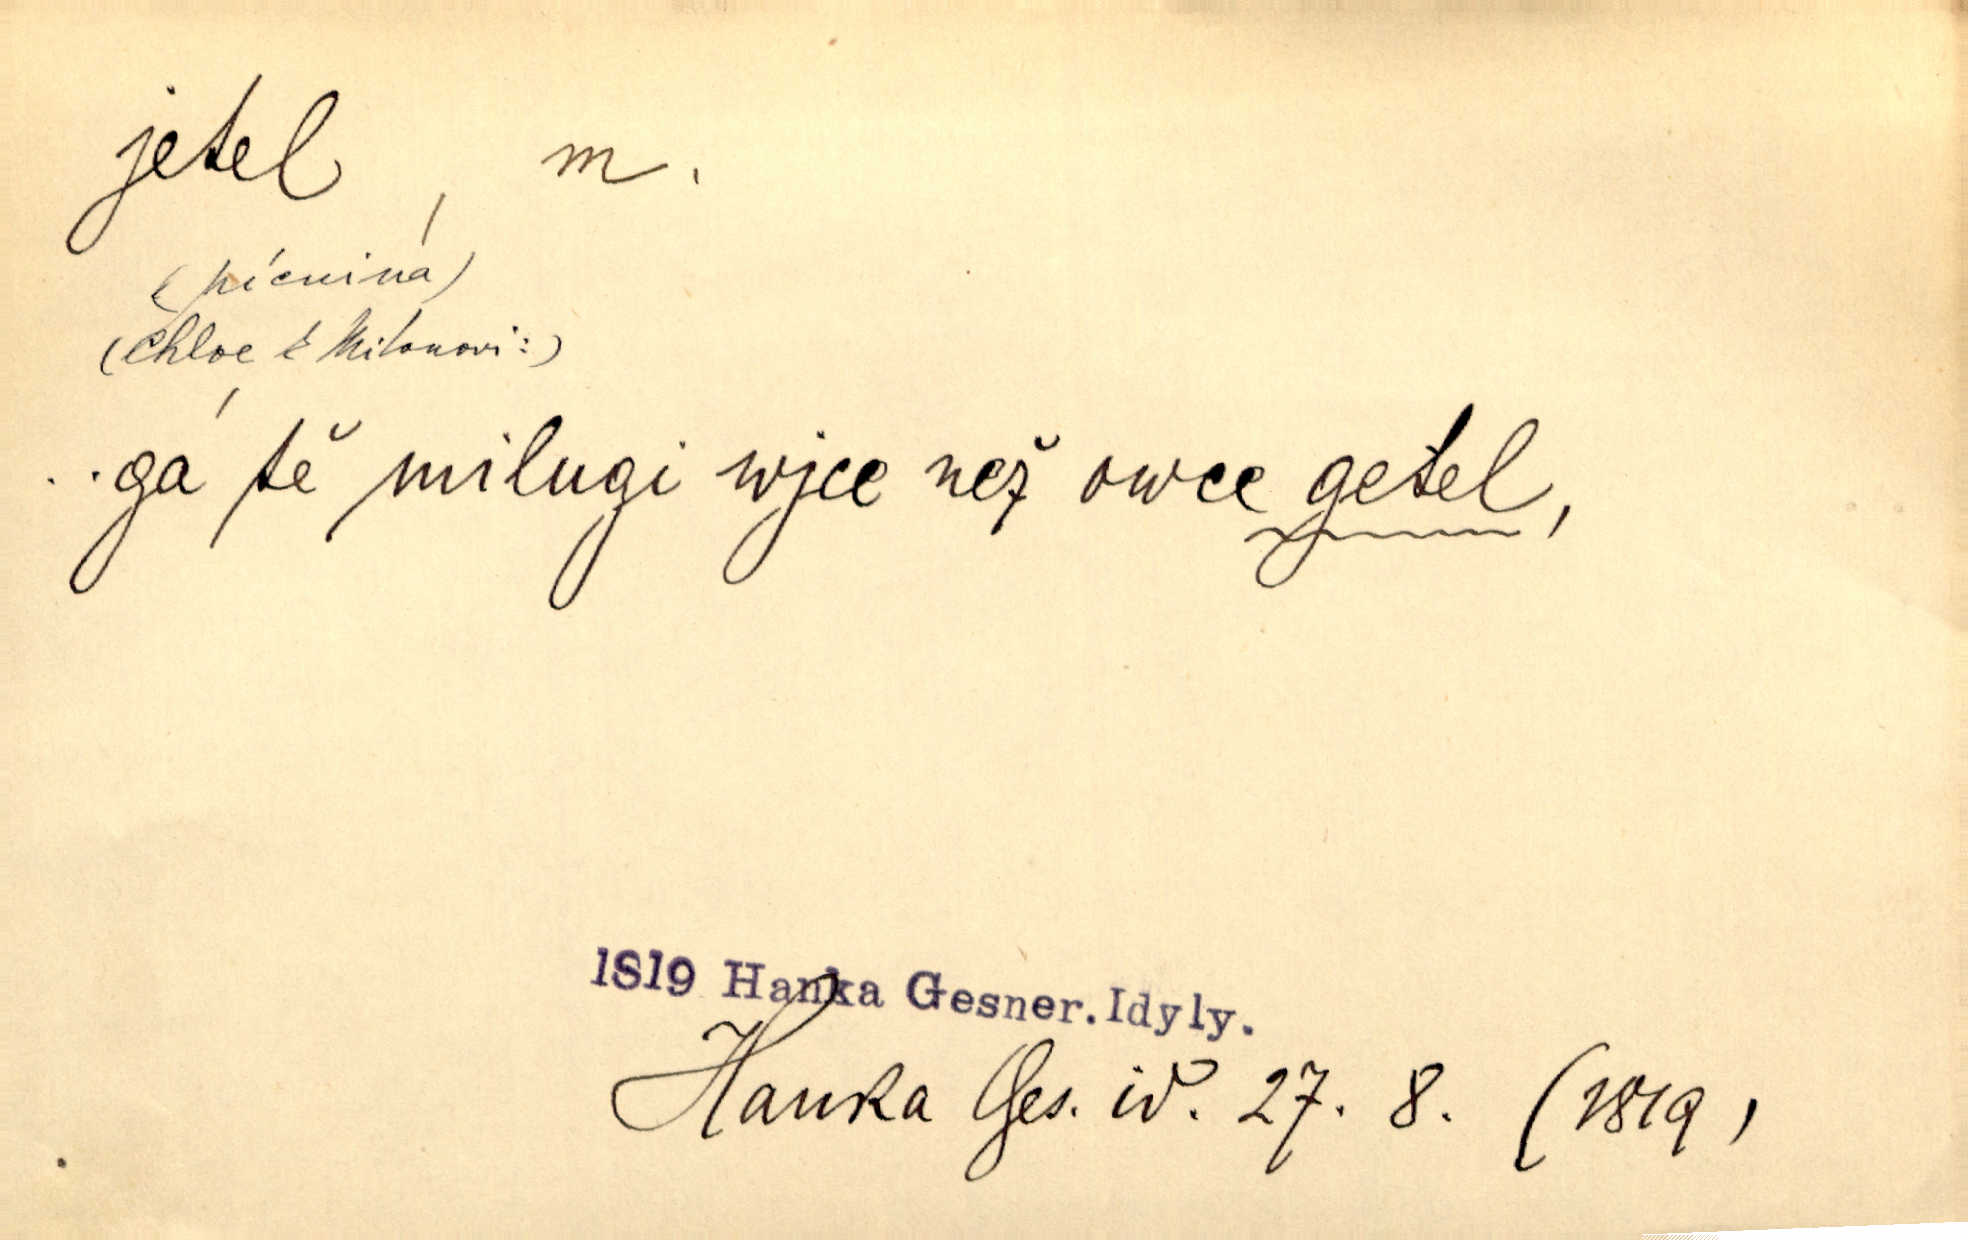 jetel, m.
(pícnina)
(Chloe k Milonovi:)
..gá tě milugi wjce než owce getel,
1819 Hanka Gesner. Idyly.
Hanka Ges. id. 27. 8. (1819,